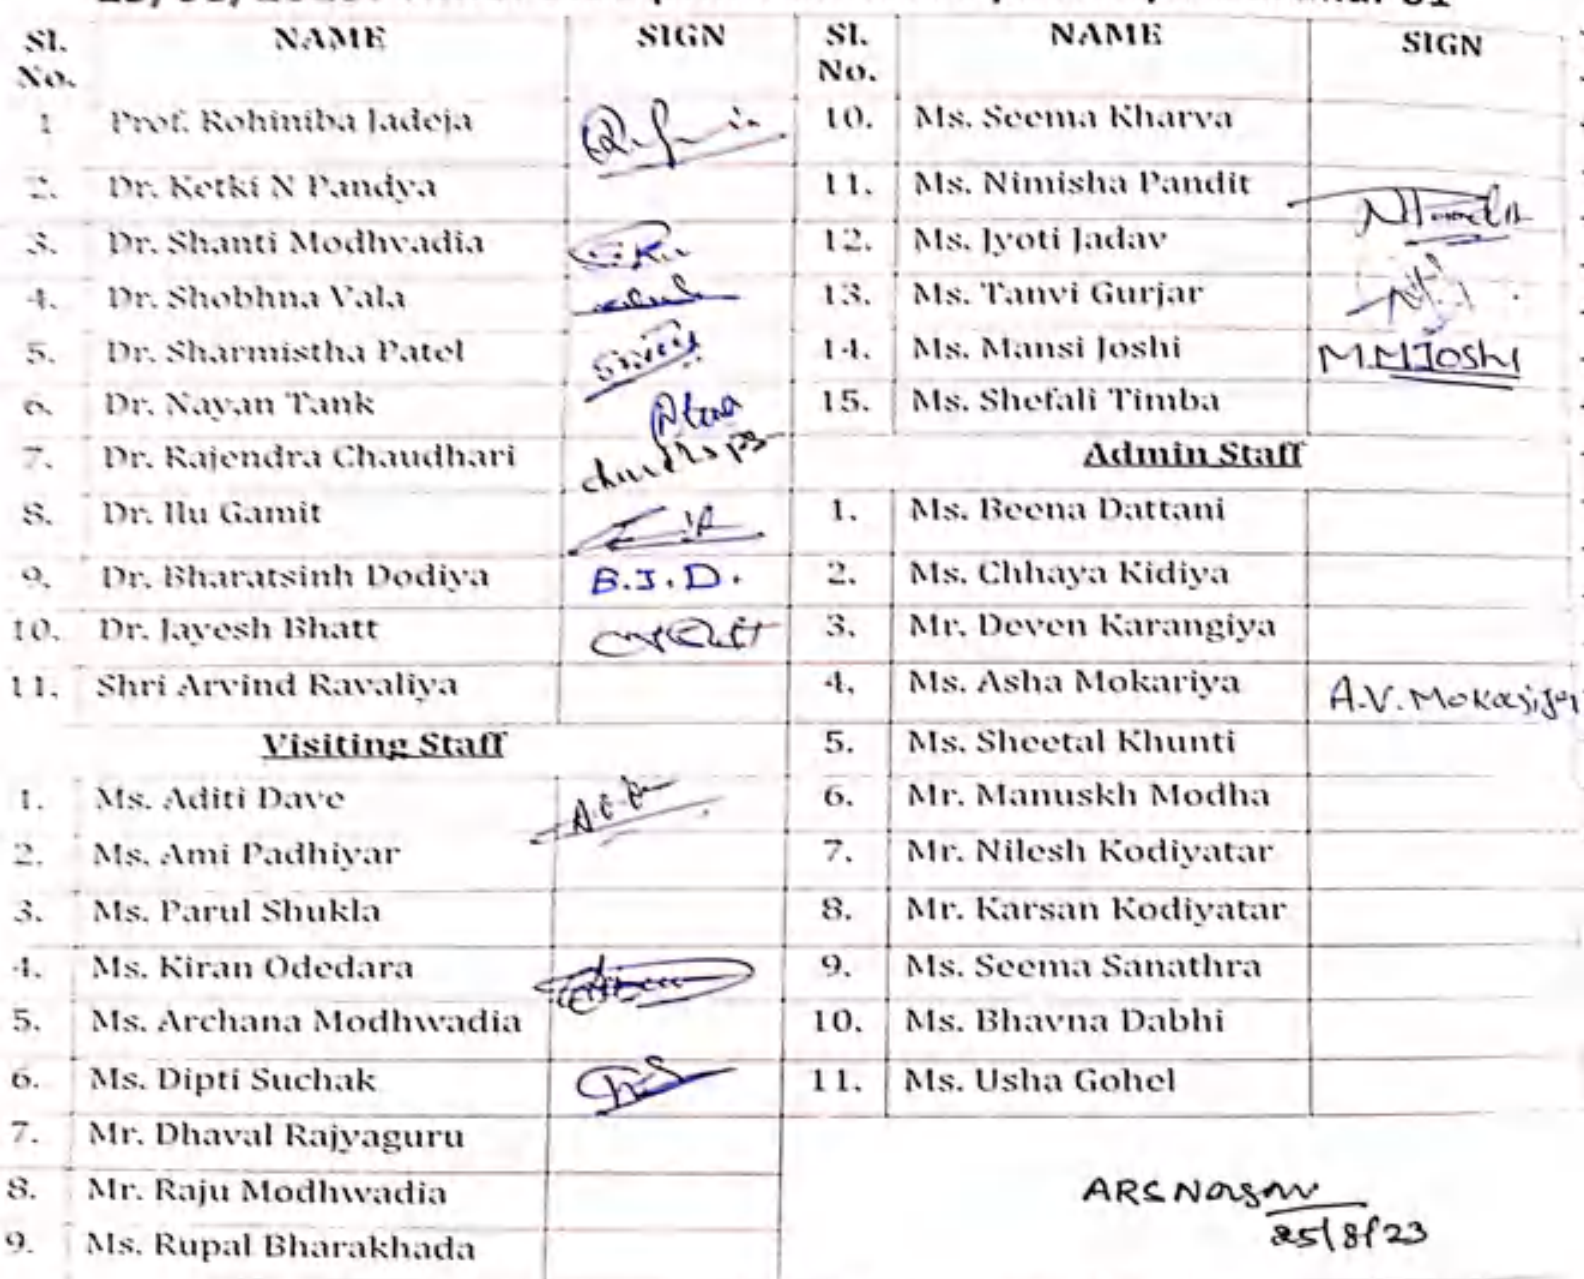 Sl. No. NAME SIGN
1 Prof. Rohiniba Jadeja
2. Dr. Ketki N Pandya
3. Dr. Shanti Modhvadia
4. Dr. Shobhna Vala
5. Dr. Sharmistha Patel
6. Dr. Nayan Tank
7. Dr. Rajendra Chaudhari
8. Dr. Ilu Gamit
9. Dr. Bharatsinh Dodiya B.J.D.
10. Dr. Jayesh Bhatt
11. Shri Arvind Ravaliya
Visiting Staff
1. Ms. Aditi Dave
2. Ms. Ami Padhiyar
3. Ms. Parul Shukla
4. Ms. Kiran Odedara
5. Ms. Archana Modhwadia
6. Ms. Dipti Suchak
7. Mr. Dhaval Rajyaguru
8. Mr. Raju Modhwadia
9. Ms. Rupal Bharakhada
Sl. No. NAME SIGN
10. Ms. Seema Kharva
11. Ms. Nimisha Pandit
12. Ms. Jyoti Jadav
13. Ms. Tanvi Gurjar
14. Ms. Mansi Joshi M.M.Joshi
15. Ms. Shefali Timba
Admin Staff
1. Ms. Beena Dattani
2. Ms. Chhaya Kidiya
3. Mr. Deven Karangiya
4. Ms. Asha Mokariya A.V. Mokariya
5. Ms. Sheetal Khunti
6. Mr. Manuskh Modha
7. Mr. Nilesh Kodiyatar
8. Mr. Karsan Kodiyatar
9. Ms. Seema Sanathra
10. Ms. Bhavna Dabhi
11. Ms. Usha Gohel
25/8/23